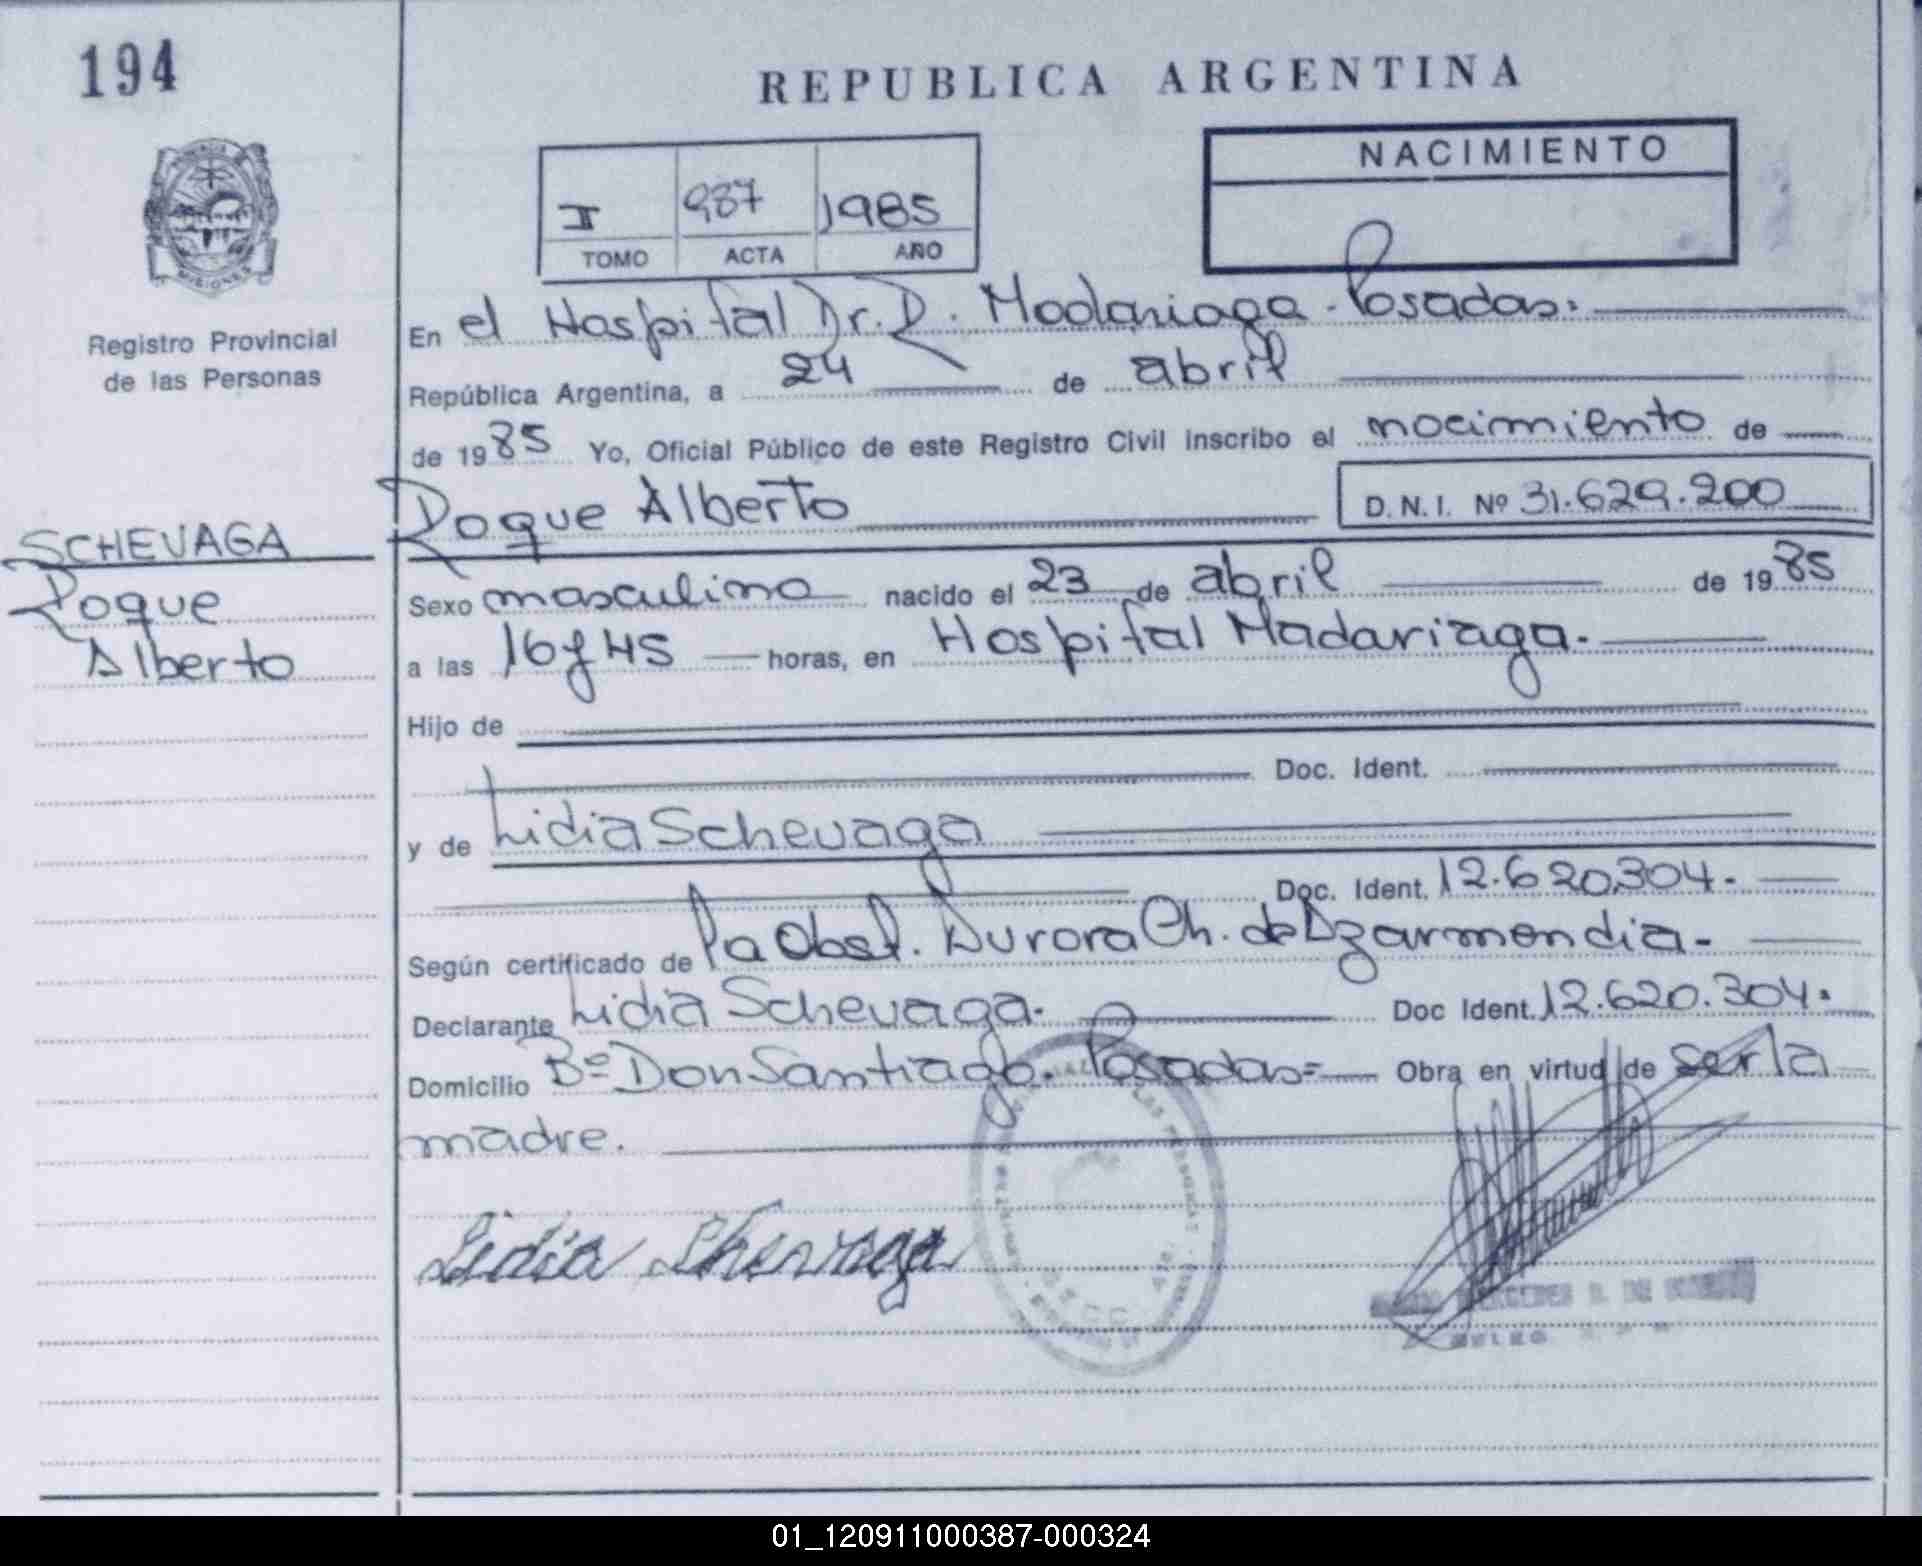 194
REPUBLICA ARGENTINA
NACIMIENTO
I 987 1985
TOMO ACTA AÑO
MISIONES
Registro Provincial
de las Personas
SCHEVAGA
Roque
Alberto
En el Hospital Dr. R. Madariaga - Posadas.
República Argentina, a 24 de abril
de 1985 Yo, Oficial Público de este Registro Civil inscribo el nacimiento de
Roque Alberto D.N.I. Nº 31.629.200
Sexo masculino nacido el 23 de abril de 1985
a las 16 y 45 horas, en Hospital Madariaga.
Hijo de
Doc. Ident.
y de Lidia Schevaga
Doc. Ident. 12.620.304.
Según certificado de la Obst. Aurora Ch. de Azarmendia.
Declarante Lidia Schevaga. Doc Ident. 12.620.304.
Domicilio Bº Don Santiago. Posadas= Obra en virtud de ser la
madre.
Lidia Shevaga
01_120911000387-000324